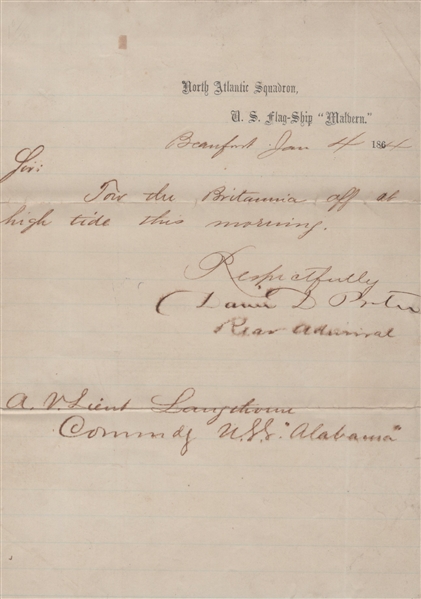 North Atlantic Squadron,
U. S. Flag-Ship "Malvern."
Beaufort Jan 4 1864
Sir:
Tow the Britannia off at
high tide this morning.
Respectfully
David D Porter
Rear Admiral
A. V. Lieut Langthorne
Commdg U.S.S. "Alabama"